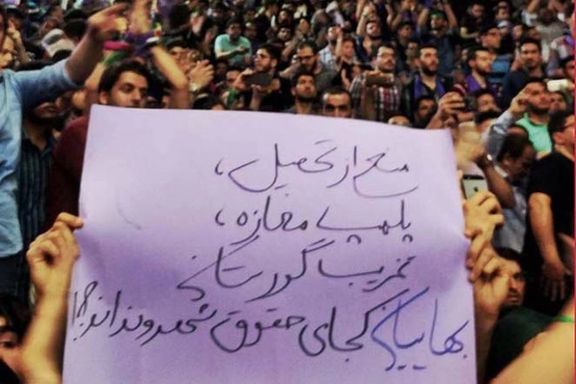 منع از تحصیل،
پلمپ مغازه،
تخریب گورستان
بهاییان کجای حقوق شهروندی‌اند؟!